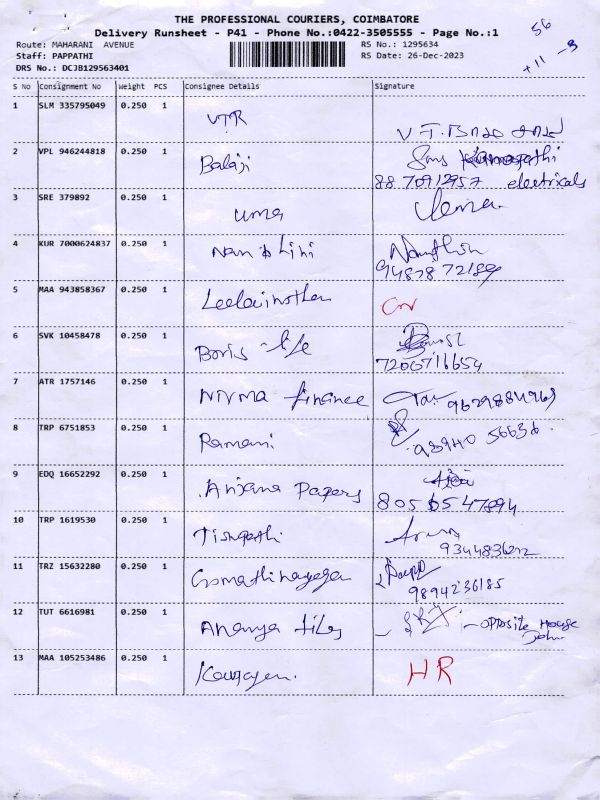 THE PROFESSIONAL COURIERS, COIMBATORE
Delivery Runsheet - P41 - Phone No.:0422-3505555 - Page No.:1
56
+11 -3
Route: MAHARANI AVENUE
RS No.: 1295634
Staff: PAPPATHI
RS Date: 26-Dec-2023
DRS No.: DCJB129563401
S No Consignment No Weight PCS Consignee Details Signature
1 SLM 335795049 0.250 1 VTR
2 VPL 946244818 0.250 1 Balaji
88 70912957 electricals
3 SRE 379892 0.250 1 uma Uma
4 KUR 7000624837 0.250 1 Nandhini
94878 72189
5 MAA 943858367 0.250 1
6 SVK 10458478 0.250 1 Boris life
7206716654
7 ATR 1757146 0.250 1 Nirma finance 9629884969
8 TRP 6751853 0.250 1 Ramani 93940 56636
9 EDQ 16652292 0.250 1 Anjana Papers
8056547894
10 TRP 1619530 0.250 1 Tirupathi
11 TRZ 15632280 0.250 1 Gomathinayaga
9894236185
12 TUT 6616981 0.250 1 Ananya tiles - opposite House
John
13 MAA 105253486 0.250 1 HR